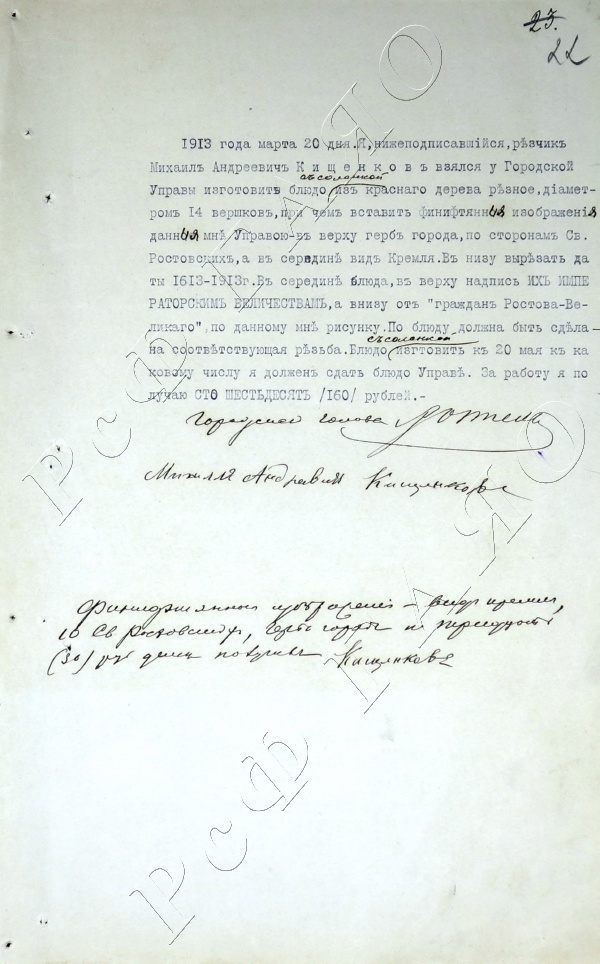 23.
22
1913 года марта 20 дня.Я,нижеподписавшійся,рѣзчикъ
Михаилъ Андреевичъ К и щ е н к о в ъ взялся у Городской
съ солонкой
Управы изготовить блюдо изъ краснаго дерева рѣзное,діамет-
ромъ 14 вершковъ,при чемъ вставить финифтянныя изображенія
данныя мнѣ Управою-въ верху гербъ города,по сторонамъ Св.
Ростовскихъ,а въ серединѣ видъ Кремля.Въ низу вырѣзать да
ты 1613-1913г.Въ серединѣ блюда,въ верху надпись ИХЪ ИМПЕ
РАТОРСКИМЪ ВЕЛИЧЕСТВАМЪ,а внизу отъ "гражданъ Ростова-Ве-
ликаго",по данному мнѣ рисунку.По блюду должна быть сдѣла-
съ солонкой
на соотвѣтствующая рѣзьба.Блюдо изготовить къ 20 мая къ ка
ковому числу я долженъ сдать блюдо Управѣ. За работу я по
лучаю СТО ШЕСТЬДЕСЯТЪ /160/ рублей.-
Городской голова
Михаилъ Андреевичъ Кищенковъ
Финифтянныя изображенія – видъ кремля,
10 Св Ростовскихъ, гербъ города и
(30) руб получилъ Кищенковъ
РсФ ГАЯО
РсФ ГАЯО